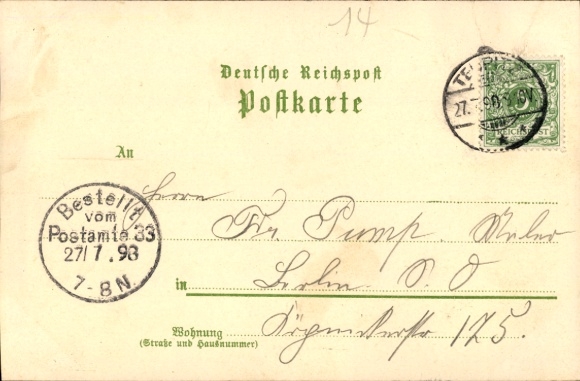 14
Deutsche Reichspost
Postkarte
TEUPITZ
27.7.98
REICHSPOST
An
Herrn
Bestellt
vom
Postamte 33
27/7.98
7-8N.
Fr. Pump. Maler
in Berlin S. O
Wohnung Köpnickerstr 175.
(Straße und Hausnummer)